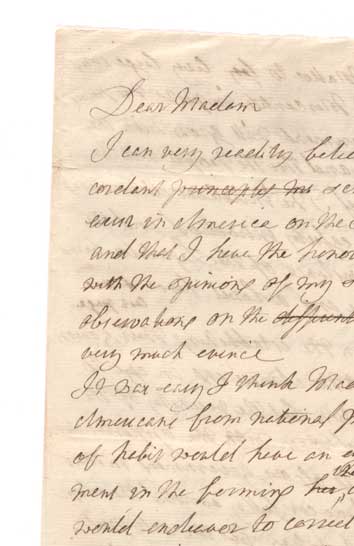 Dear Madam
I can very readily belie
cordant principles
exist in America on the
and that I have the hono
with the opinions of my
observations on the
very much evince
It was easy I think Mad
Americans from national
of habit would have an
ment in the forming her
would endeavor to correc